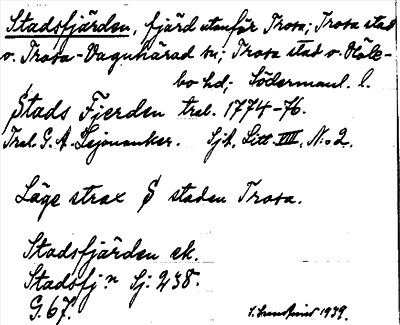 Stadsfjärden, fjärd utanför Trosa; Trosa stad
o. Trosa-Vagnhärad sn; Trosa stad o. Höle-
bo hd; Södermanl. l.
Stads Fjerden trol. 1774-76.
Trol. G. A. Lejonanker. Sjk. Litt VIII, No 2.
Läge strax S staden Trosa.
Stadsfjärden ek.
Stadsfj:n Sj: 238.
G. 67.
1939.